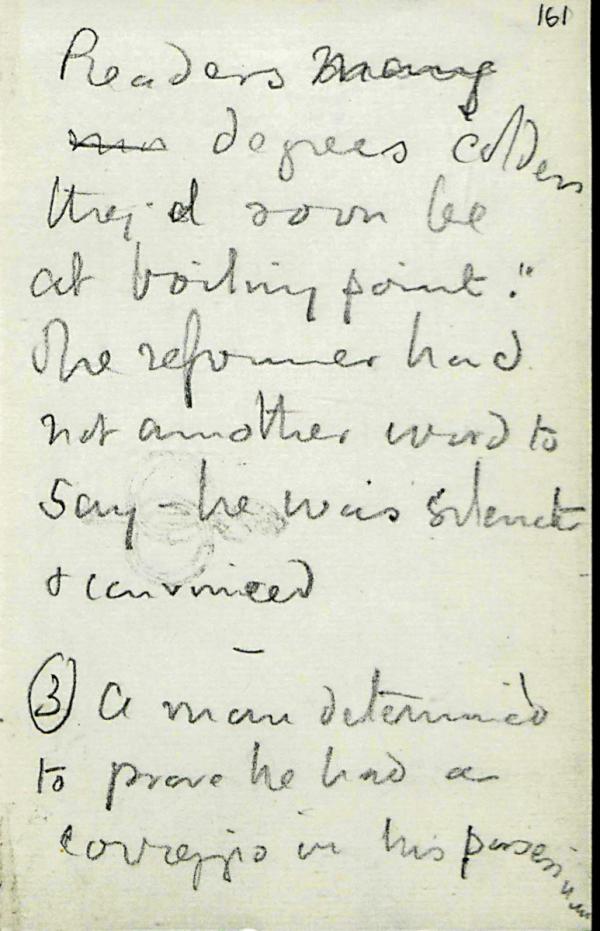 161
Readers many
degrees colder
they'd soon be
at boiling point."
The reformer had
not another word to
say - he was silent
& convinced
—
③ A man determined
to prove he had a
Correggio in his possession